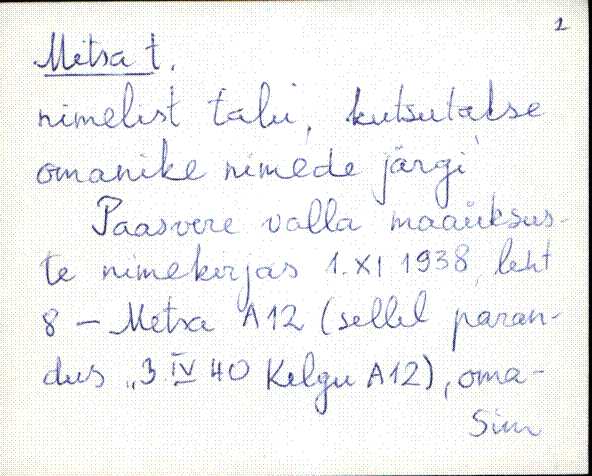 2
Metsa t.
nimelist talu, kutsutakse
omanike nimede järgi
Paasvere valla maaüksus-
te nimekirjas 1. XI 1938, leht
8 – Metsa A12 (sellel paran-
dus „3. IV 40 Kelgu A12), oma-
Sim